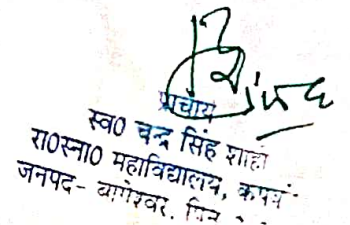 प्राचार्य
स्व0 चन्द्र सिंह शाही
रा0स्ना0 महाविद्यालय,
जनपद- बागेश्वर.